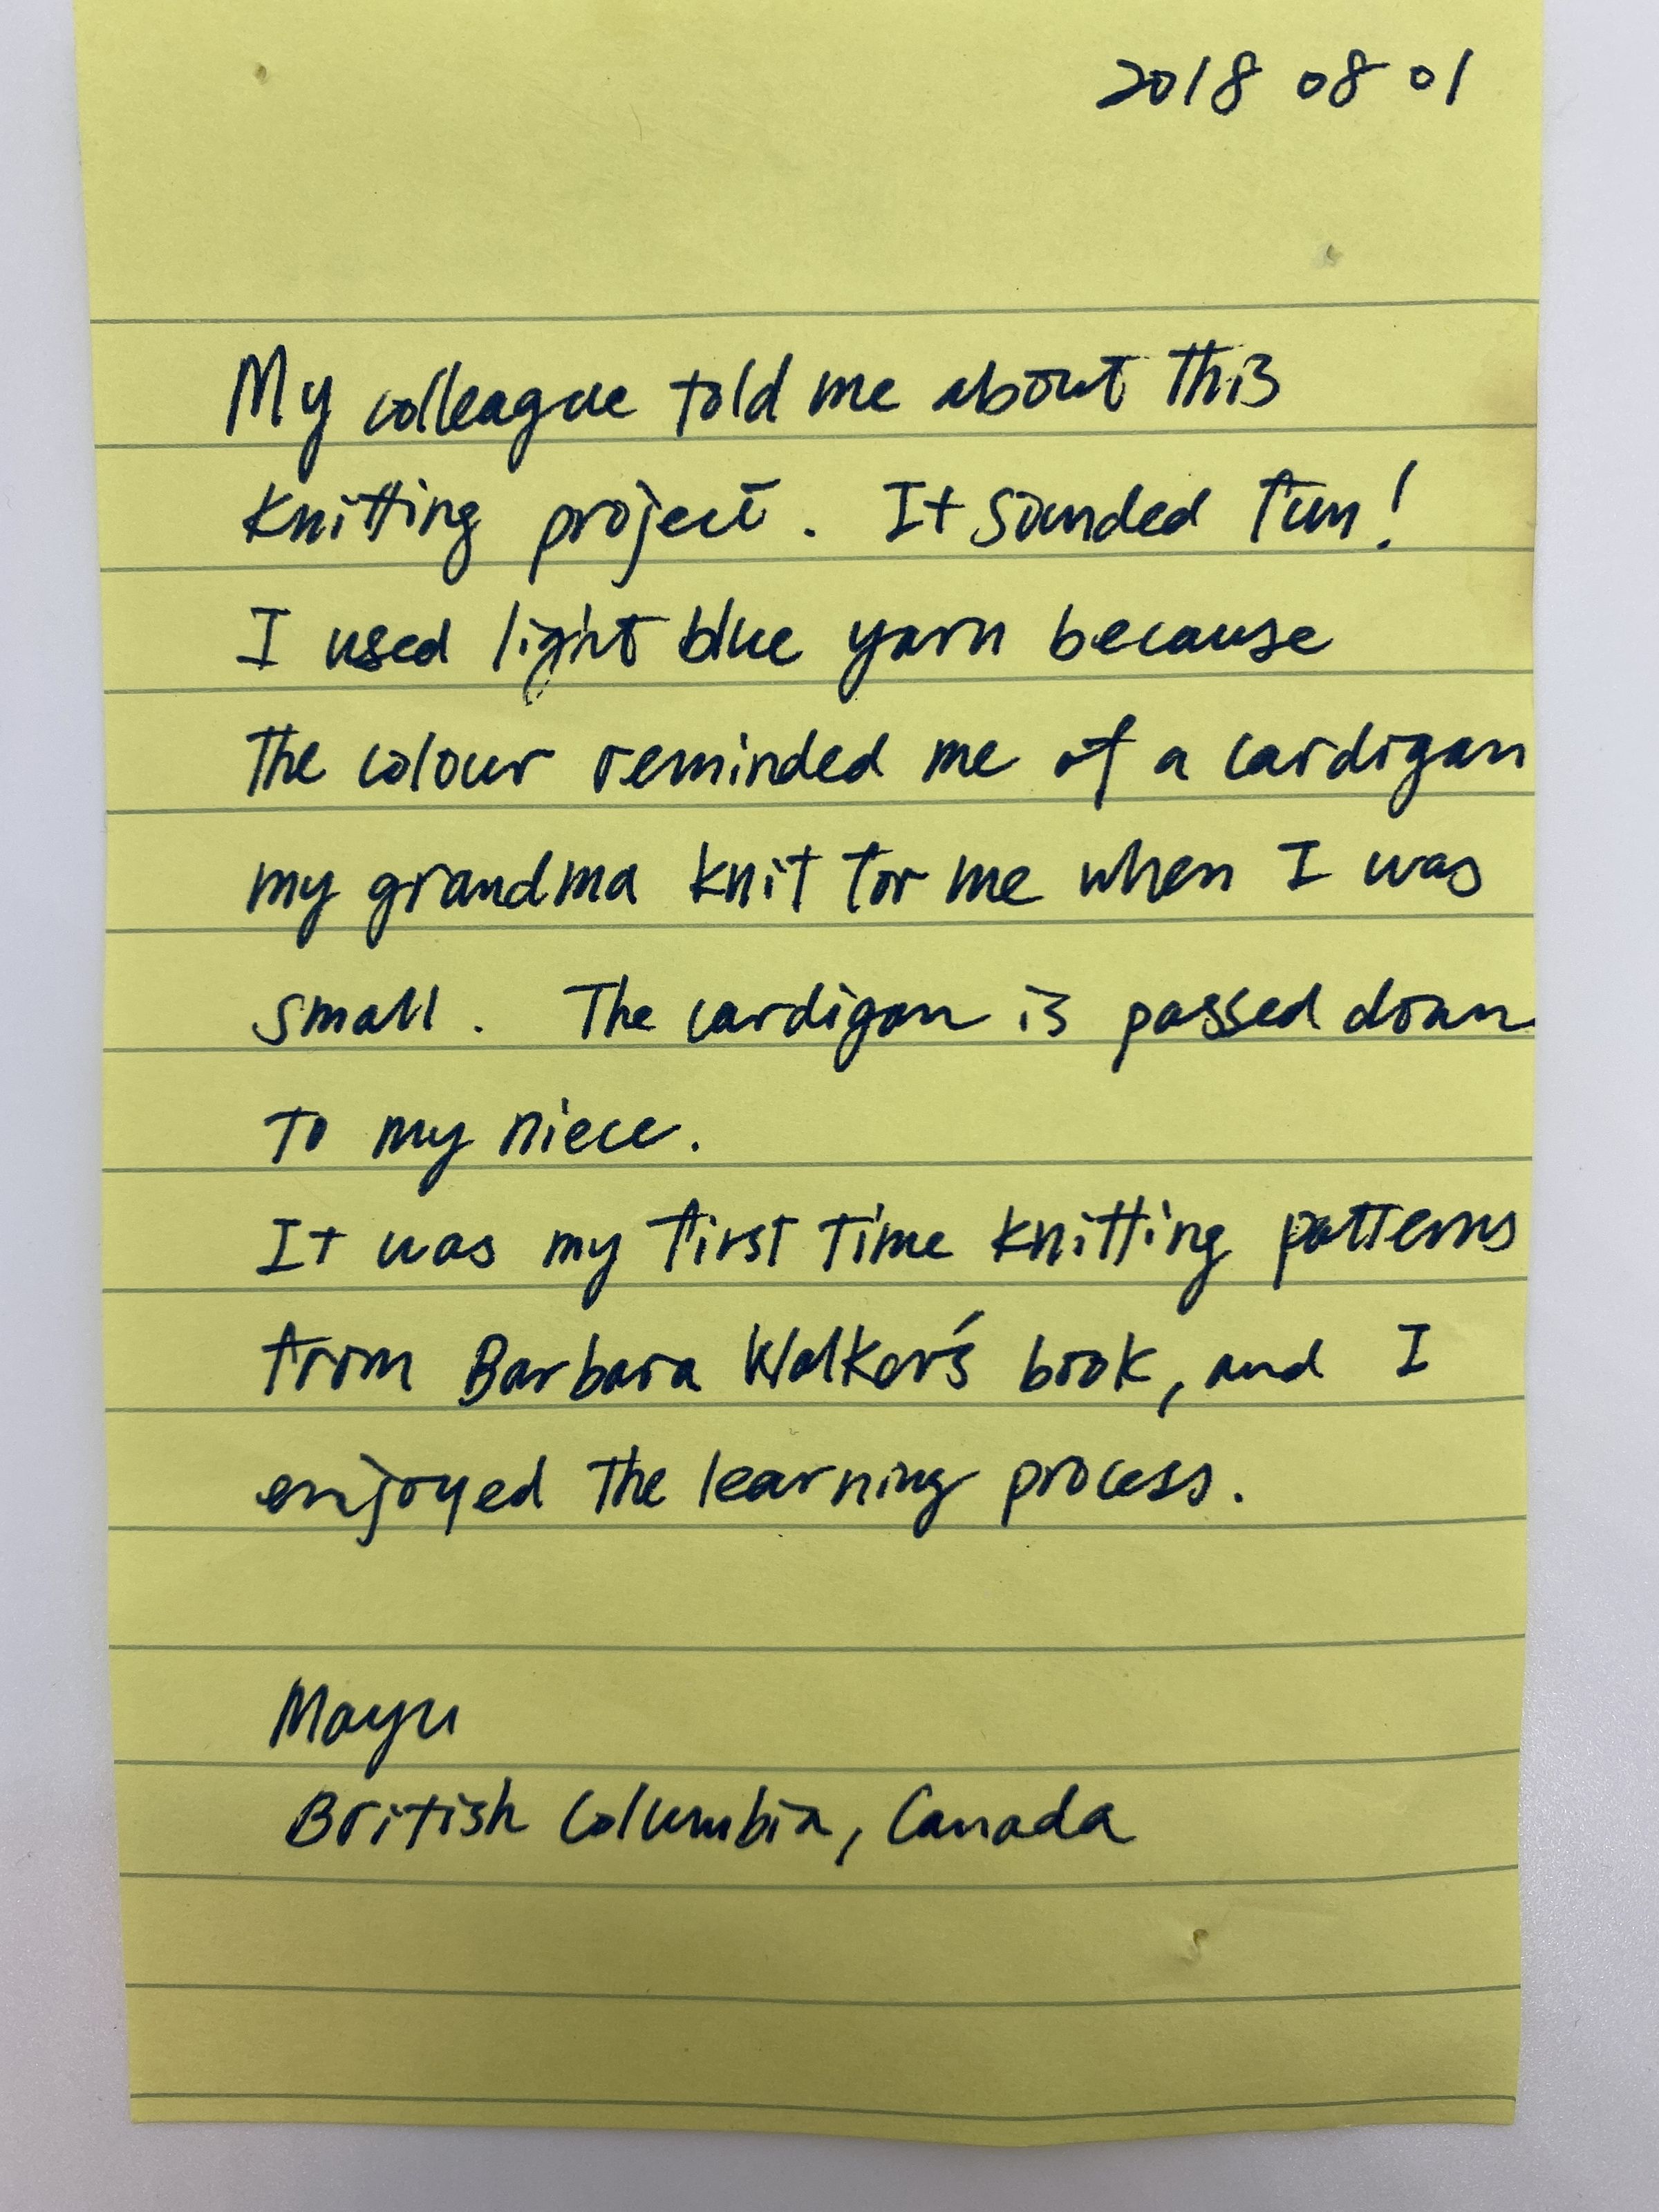 2018 08 01
My colleague told me about this
knitting project. It sounded fun!
I used light blue yarn because
the colour reminded me of a cardigan
my grandma knit for me when I was
small. The cardigan is passed down
to my niece.
It was my first time knitting patterns
from Barbara Walker's book, and I
enjoyed the learning process.
Mayu
British Columbia, Canada